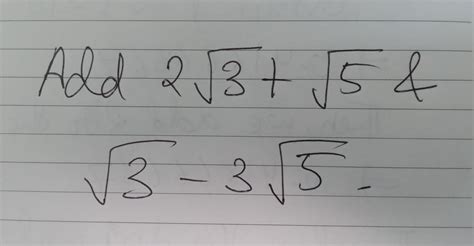 Add 2√3 + √5 &
√3 - 3√5.